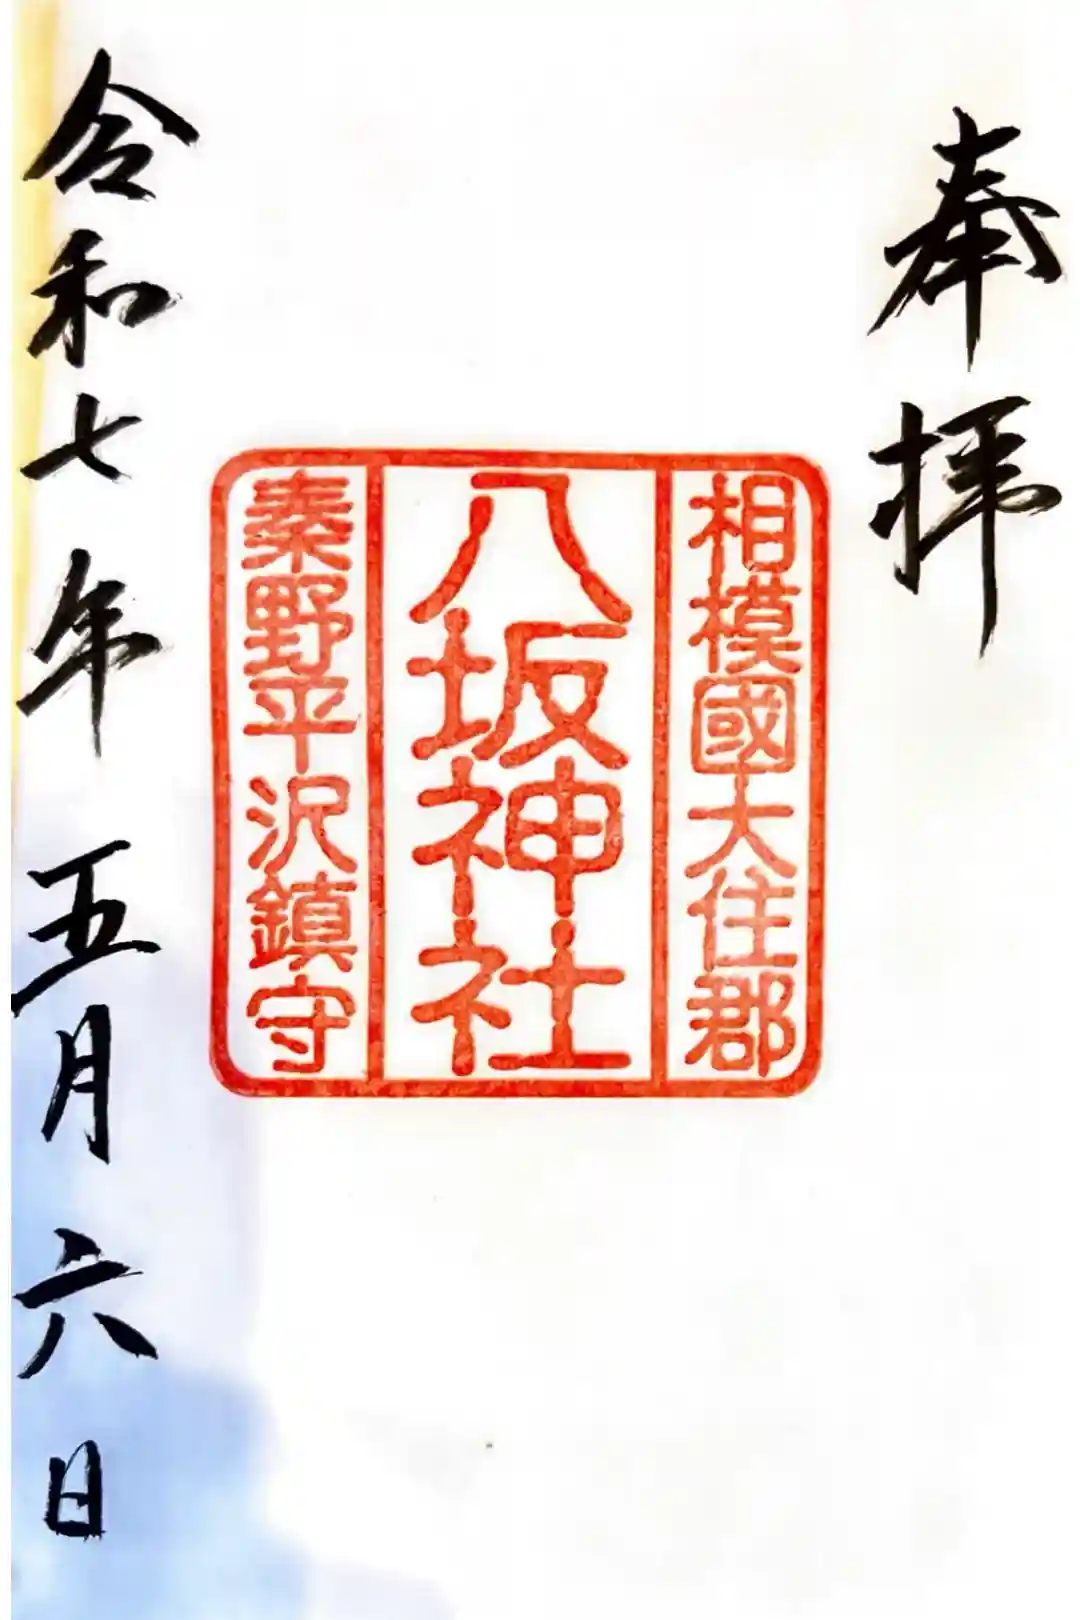 奉拝
相模國大住郡
八坂神社
秦野平沢鎮守
令和七年五月六日